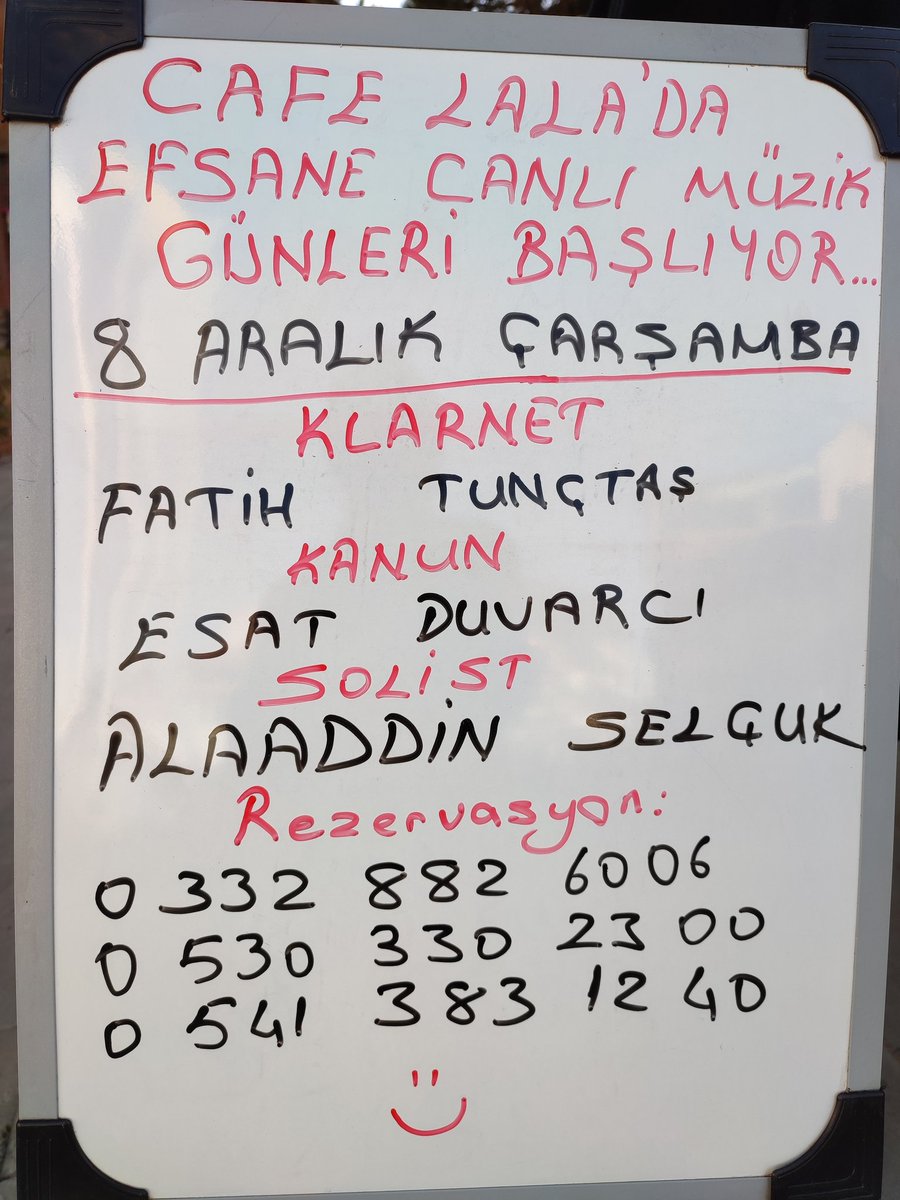 CAFE LALA'DA
EFSANE CANLI MÜZİK
GÜNLERİ BAŞLIYOR...
8 ARALIK ÇARŞAMBA
KLARNET
FATİH TUNÇTAŞ
KANUN
ESAT DUVARCI
SOLİST
ALAADDİN SELÇUK
Rezervasyon:
0 332 882 6006
0 530 330 23 00
0 541 383 12 40